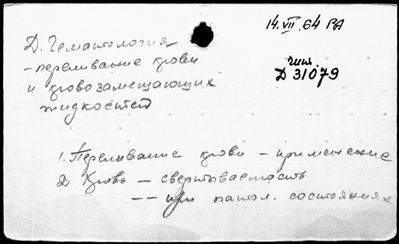 14.VII.64 РА
Д. Гематология
чит.
Д 31079
- переливание крови
и кровозамещающих
жидкостей
1. Переливание крови - применение
2. Кровь - свертываемость
-- при патол. состояниях